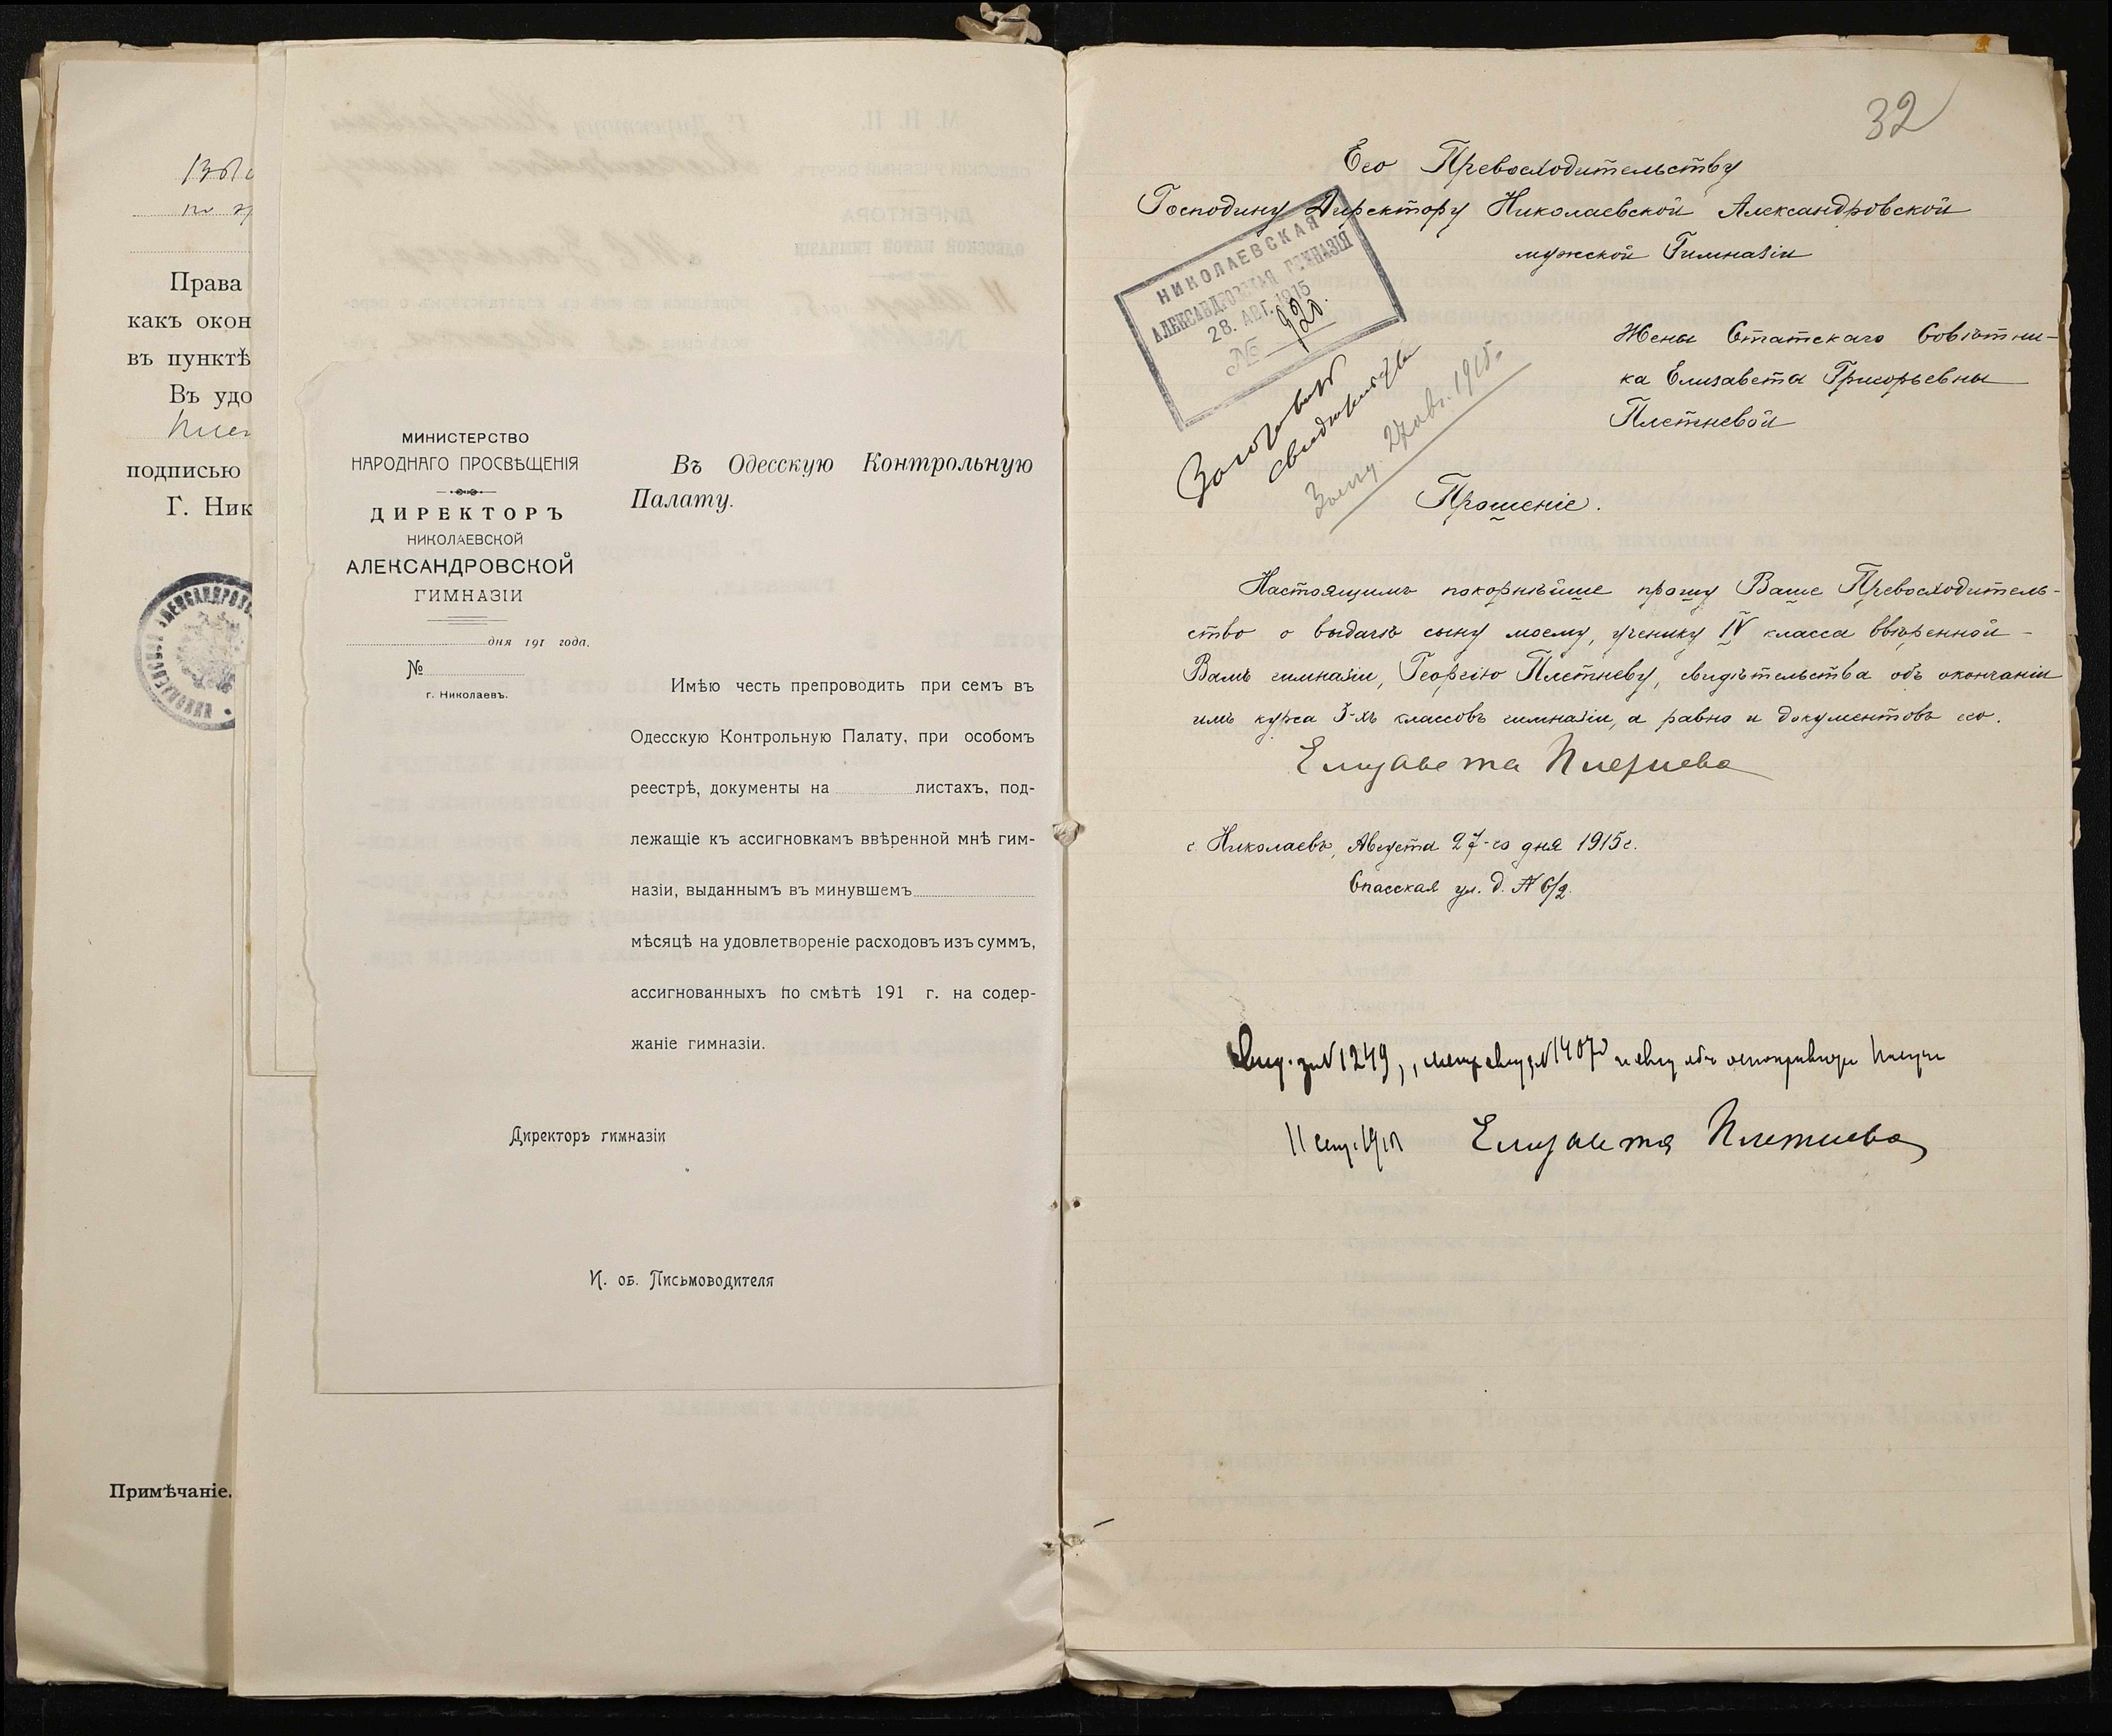 Права
какъ окон
въ пунктѣ
Въ удо
подписью
Г. Ник
Примѣчаніе.
МИНИСТЕРСТВО
НАРОДНАГО ПРОСВѢЩЕНІЯ
ДИРЕКТОРЪ
НИКОЛАЕВСКОЙ
АЛЕКСАНДРОВСКОЙ
ГИМНАЗІИ
дня 191 года.
№
г. Николаевъ.
Въ Одесскую Контрольную
Палату.
Имѣю честь препроводить при семъ въ
Одесскую Контрольную Палату, при особомъ
реестрѣ, документы на листахъ, под-
лежащіе къ ассигновкамъ ввѣренной мнѣ гим-
назіи, выданнымъ въ минувшемъ
мѣсяцѣ на удовлетвореніе расходовъ изъ суммъ,
ассигнованныхъ по смѣтѣ 191 г. на содер-
жаніе гимназіи.
Директоръ гимназіи
И. об. Письмоводителя
32
Его Превосходительству
Господину Директору Николаевской Александровской
мужской Гимназіи
НИКОЛАЕВСКАЯ
АЛЕКСАНДРОВСКАЯ ГИМНАЗІЯ
28. АВГ. 1915
№ 920.
Жены Статскаго Совѣтни-
ка Елизаветы Григорьевны
Плетневой
27 авг. 1915.
Прошеніе.
Настоящимъ покорнѣйше прошу Ваше Превосходитель-
ство о выдачѣ сыну моему, ученику IV класса ввѣренной
Вамъ гимназіи, Георгію Плетневу, свидѣтельства объ окончаніи
имъ курса 3-хъ классовъ гимназіи, а равно и документовъ его.
Елизавета Плетнева
г. Николаевъ, Августа 27-го дня 1915 г.
Спасская ул. д. № 6/2.
№ 1249, № 14070
11 сент. Елизавета Плетнева